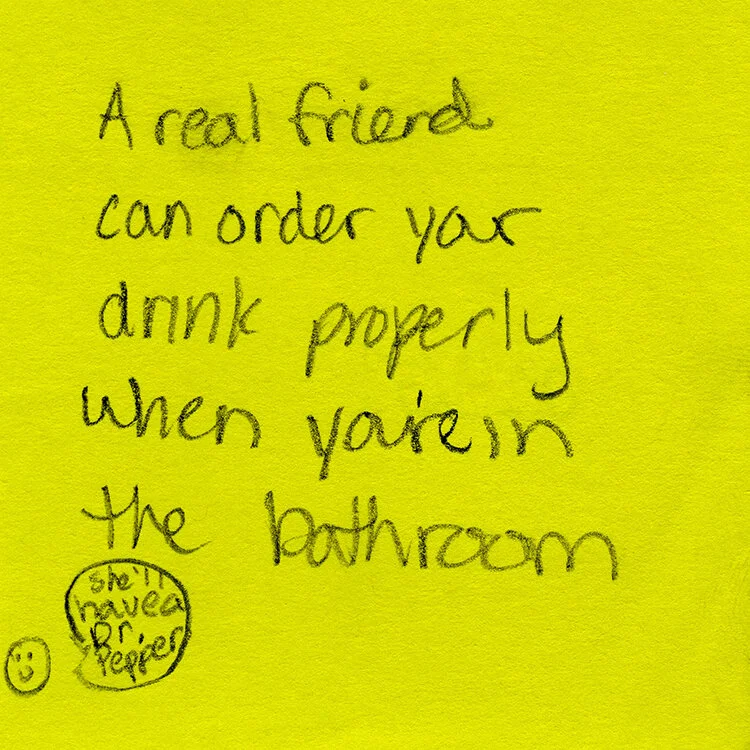 A real friend
can order your
drink properly
when you're in
the bathroom
she'll
have a
Dr.
Pepper